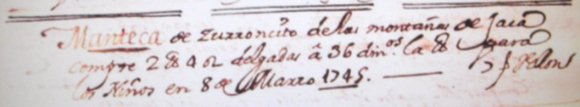 Manteca de zurroncito de las montañas de Jaca
compre 2 @ 4 @ delgadas â 36 din.os la @ para
los Niños en 8 de Marzo 1745.